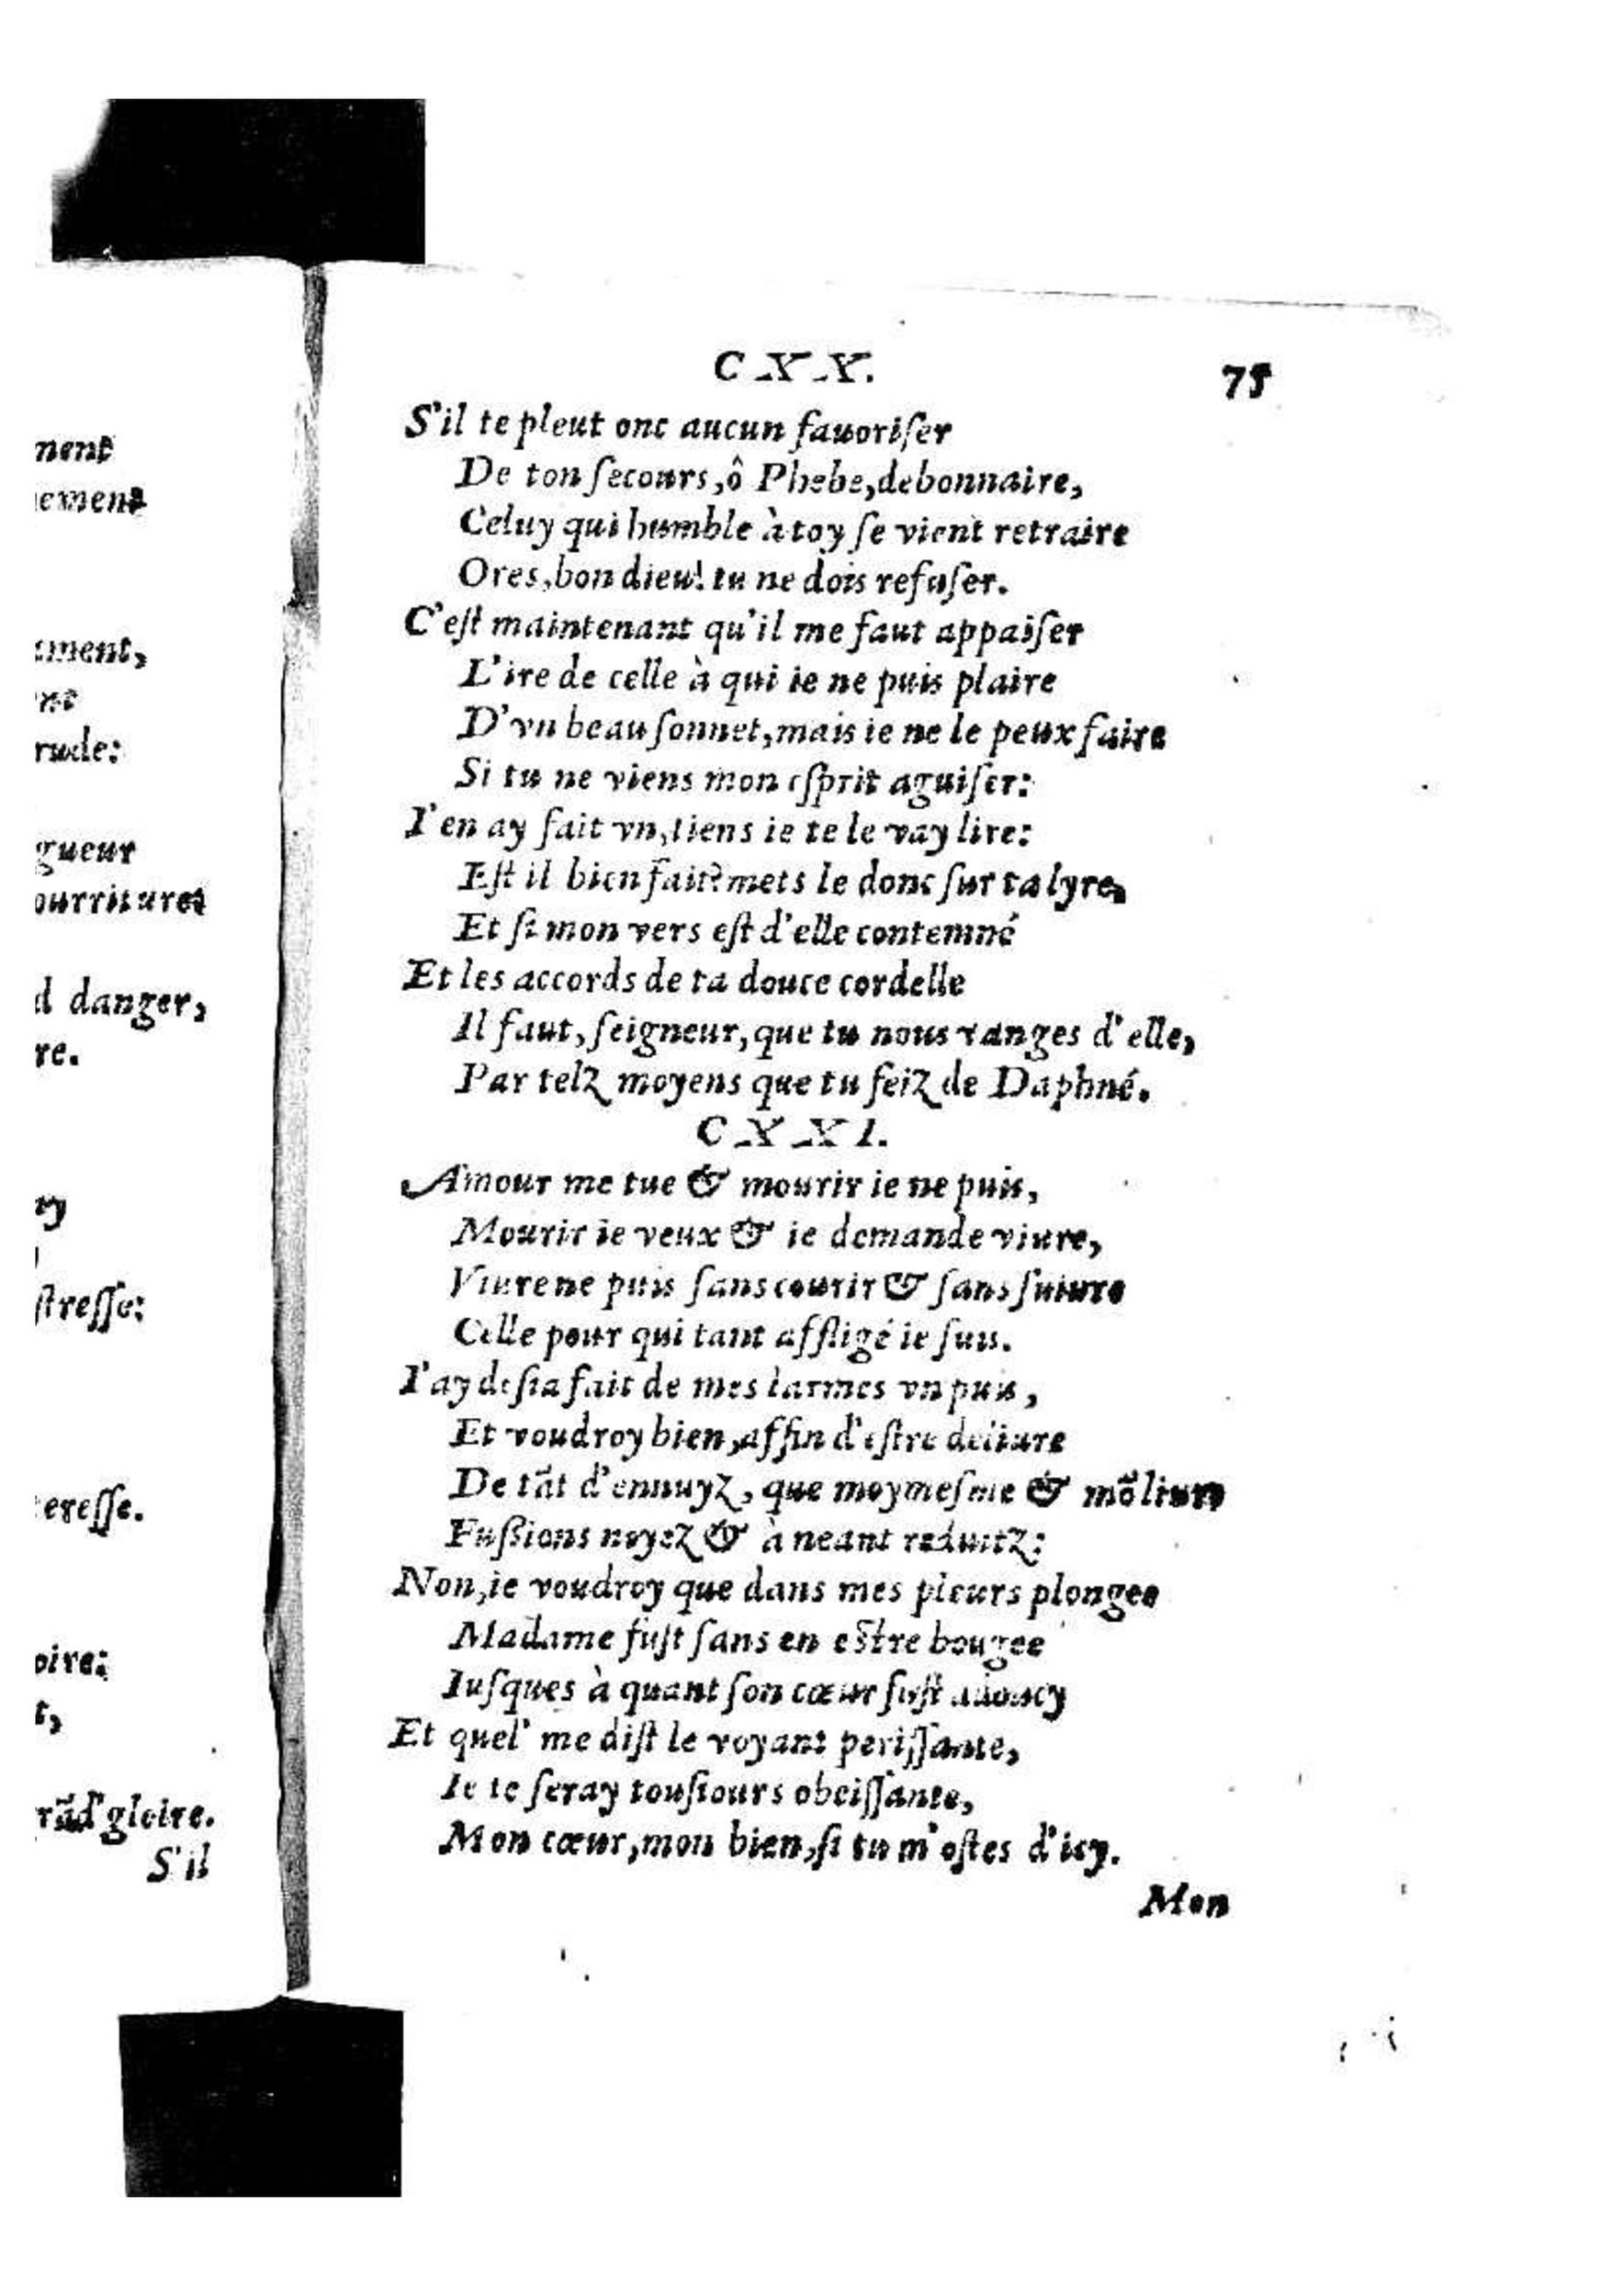 ment
ement
ment,
nt
rude:
gueur
ourritures
d danger,
re.
ry
ſtreſſe:
ereſſe.
oire:
t,
rãd' gloire.
S'il
CXX.
75
S'il te pleut onc aucun fauoriſer
De ton ſecours, ô Phebe, debonnaire,
Celuy qui humble à toy ſe vient retraire
Ores, bon dieu! tu ne dois refuſer.
C'eſt maintenant qu'il me faut appaiſer
L'ire de celle à qui ie ne puis plaire
D'vn beau ſonnet, mais ie ne le peux faire
Si tu ne viens mon eſprit aguiſer:
I'en ay fait vn, tiens ie te le vay lire:
Eſt il bien fait? mets le donc ſur ta lyre,
Et ſi mon vers eſt d'elle contemné
Et les accords de ta douce cordelle
Il faut, ſeigneur, que tu nous vanges d'elle,
Par telz moyens que tu feiz de Daphné.
CXXI.
Amour me tue & mourir ie ne puis,
Mourir ie veux & ie demande viure,
Viure ne puis ſans courir & ſans ſuiure
Celle pour qui tant affligé ie ſuis.
I'ay deſia fait de mes larmes vn puis,
Et voudroy bien, affin d'eſtre deliure
De tãt d'ennuyz, que moymeſme & mõ liure
Fuſsions noyez & à neant reduitz:
Non, ie voudroy que dans mes pleurs plongee
Madame fuſt ſans en eſtre bougee
Iuſques à quant ſon cœur fuſt adoucy
Et quel' me diſt le voyant periſſante,
Ie te ſeray touſiours obeiſſante,
Mon cœur, mon bien, ſi tu m'oſtes d'icy.
Mon